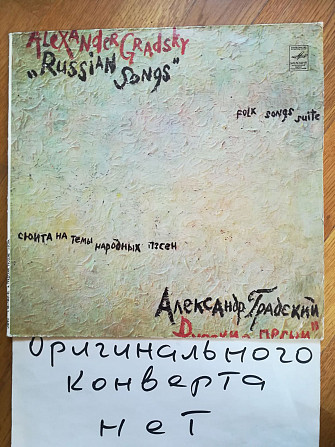 Alexander Gradsky
„Russian Songs"
Folk songs suite
сюита на темы
народных песен
Александр Градский
„Русские песни"
Оригинального
конверта
нет